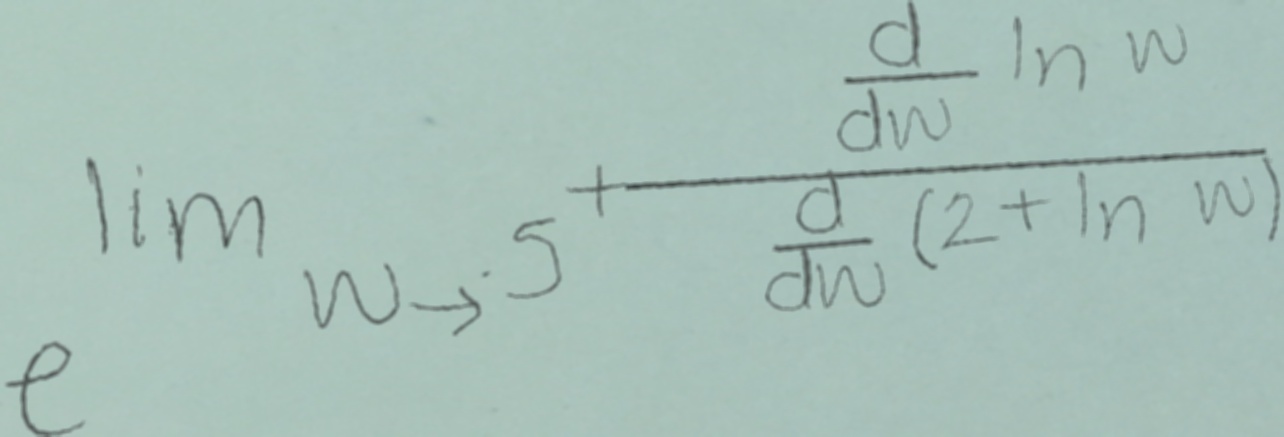 e^{\lim_{w \to 5^{+}} \frac{\frac{d}{dw} \ln w}{\frac{d}{dw} (2 + \ln w)}}